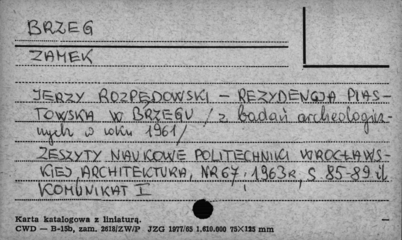 BRZEG
ZAMEK
JERZY ROZPĘDOWSKI – REZYDENCJA PIAS-
TOWSKA W BRZEGU /z badań archeologicz-
nych w roku 1961/
ZESZYTY NAUKOWE POLITECHNIKI WROCŁAWS-
KIEJ, ARCHITEKTURA, NR 67, 1963 R, S 85-89 il.
KOMUNIKAT I
Karta katalogowa z liniaturą.
CWD — B-15b, zam. 2618/ZW/P JZG 1077/65 1.610.000 75×125 mm